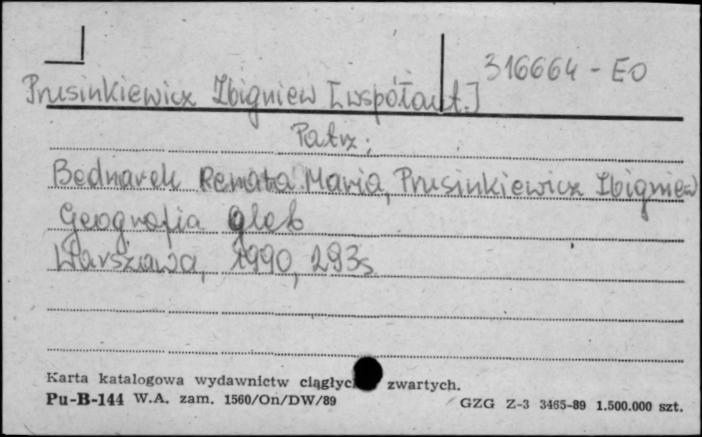 316664-EO
Prusinkiewicz Zbigniew [współaut.]
Patrz:
Bednarek Renata Maria, Prusinkiewicz Zbigniew
Geografia gleb
Warszawa, 1990, 293s
Karta katalogowa wydawnictw ciągłyc zwartych.
Pu-B-144 W.A. zam. 1560/On/DW/89 GZG Z-3 3465-89 1.500.000 szt.